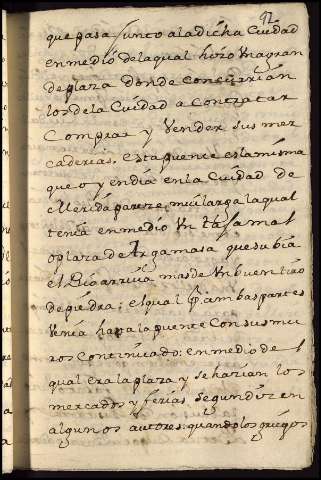 92
que pasa junto a la dicha Ciudad
en medio de la qual hizo Una gran
de plaza donde Concurrian
los de la Ciudad a Contratar
Comprar y Vender sus mer
caderias. esta puente es la misma
que oy en dia en la Ciudad de
Merida parece mui larga la qual
tenia en medio Un tajamal
o plaza de Argamasa que subia
el Rio arriva mas de Un buen tiro
de piedra: el qual por ambas partes
Venia hasta la puente Con sus mu
ros Continuado: en medio de l
qual era la plaza y se harian los
mercados y ferias segun dizen
algunos autores. quando los griegos